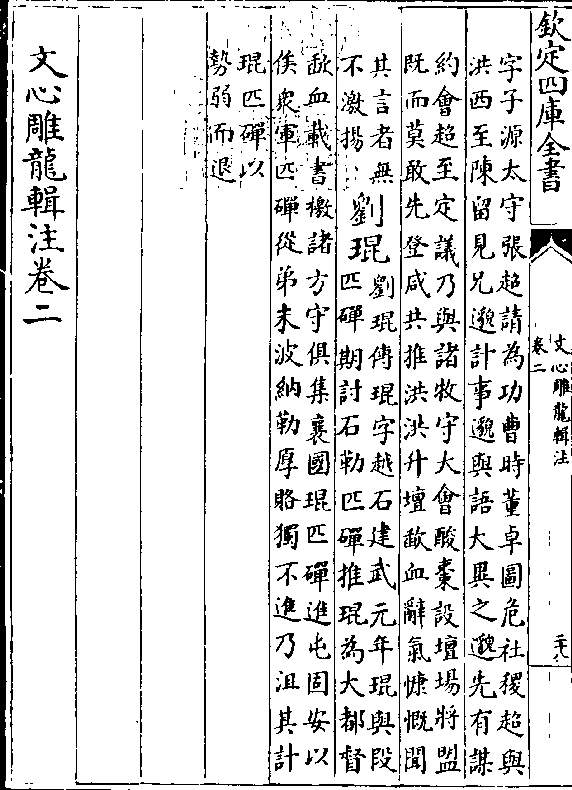 欽定四庫全書
文心雕龍輯注
卷二
二十八
字子源太守張超請為功曹時董卓圖危社稷超與
洪西至陳留見兄邈計事邈與語大異之邈先有謀
約會超至定議乃與諸牧守大會酸棗設壇場將盟
既而莫敢先登咸共推洪洪升壇歃血辭氣慷慨聞
其言者無
不激揚
劉琨
劉琨傳琨字越石建武元年琨與段
匹磾期討石勒匹磾推琨為大都督
歃血載書檄諸方守俱集襄國琨匹磾進屯固安以
俟衆軍匹磾從弟末波納勒厚賂獨不進乃沮其計
琨匹磾以
勢弱而退
文心雕龍輯注卷二